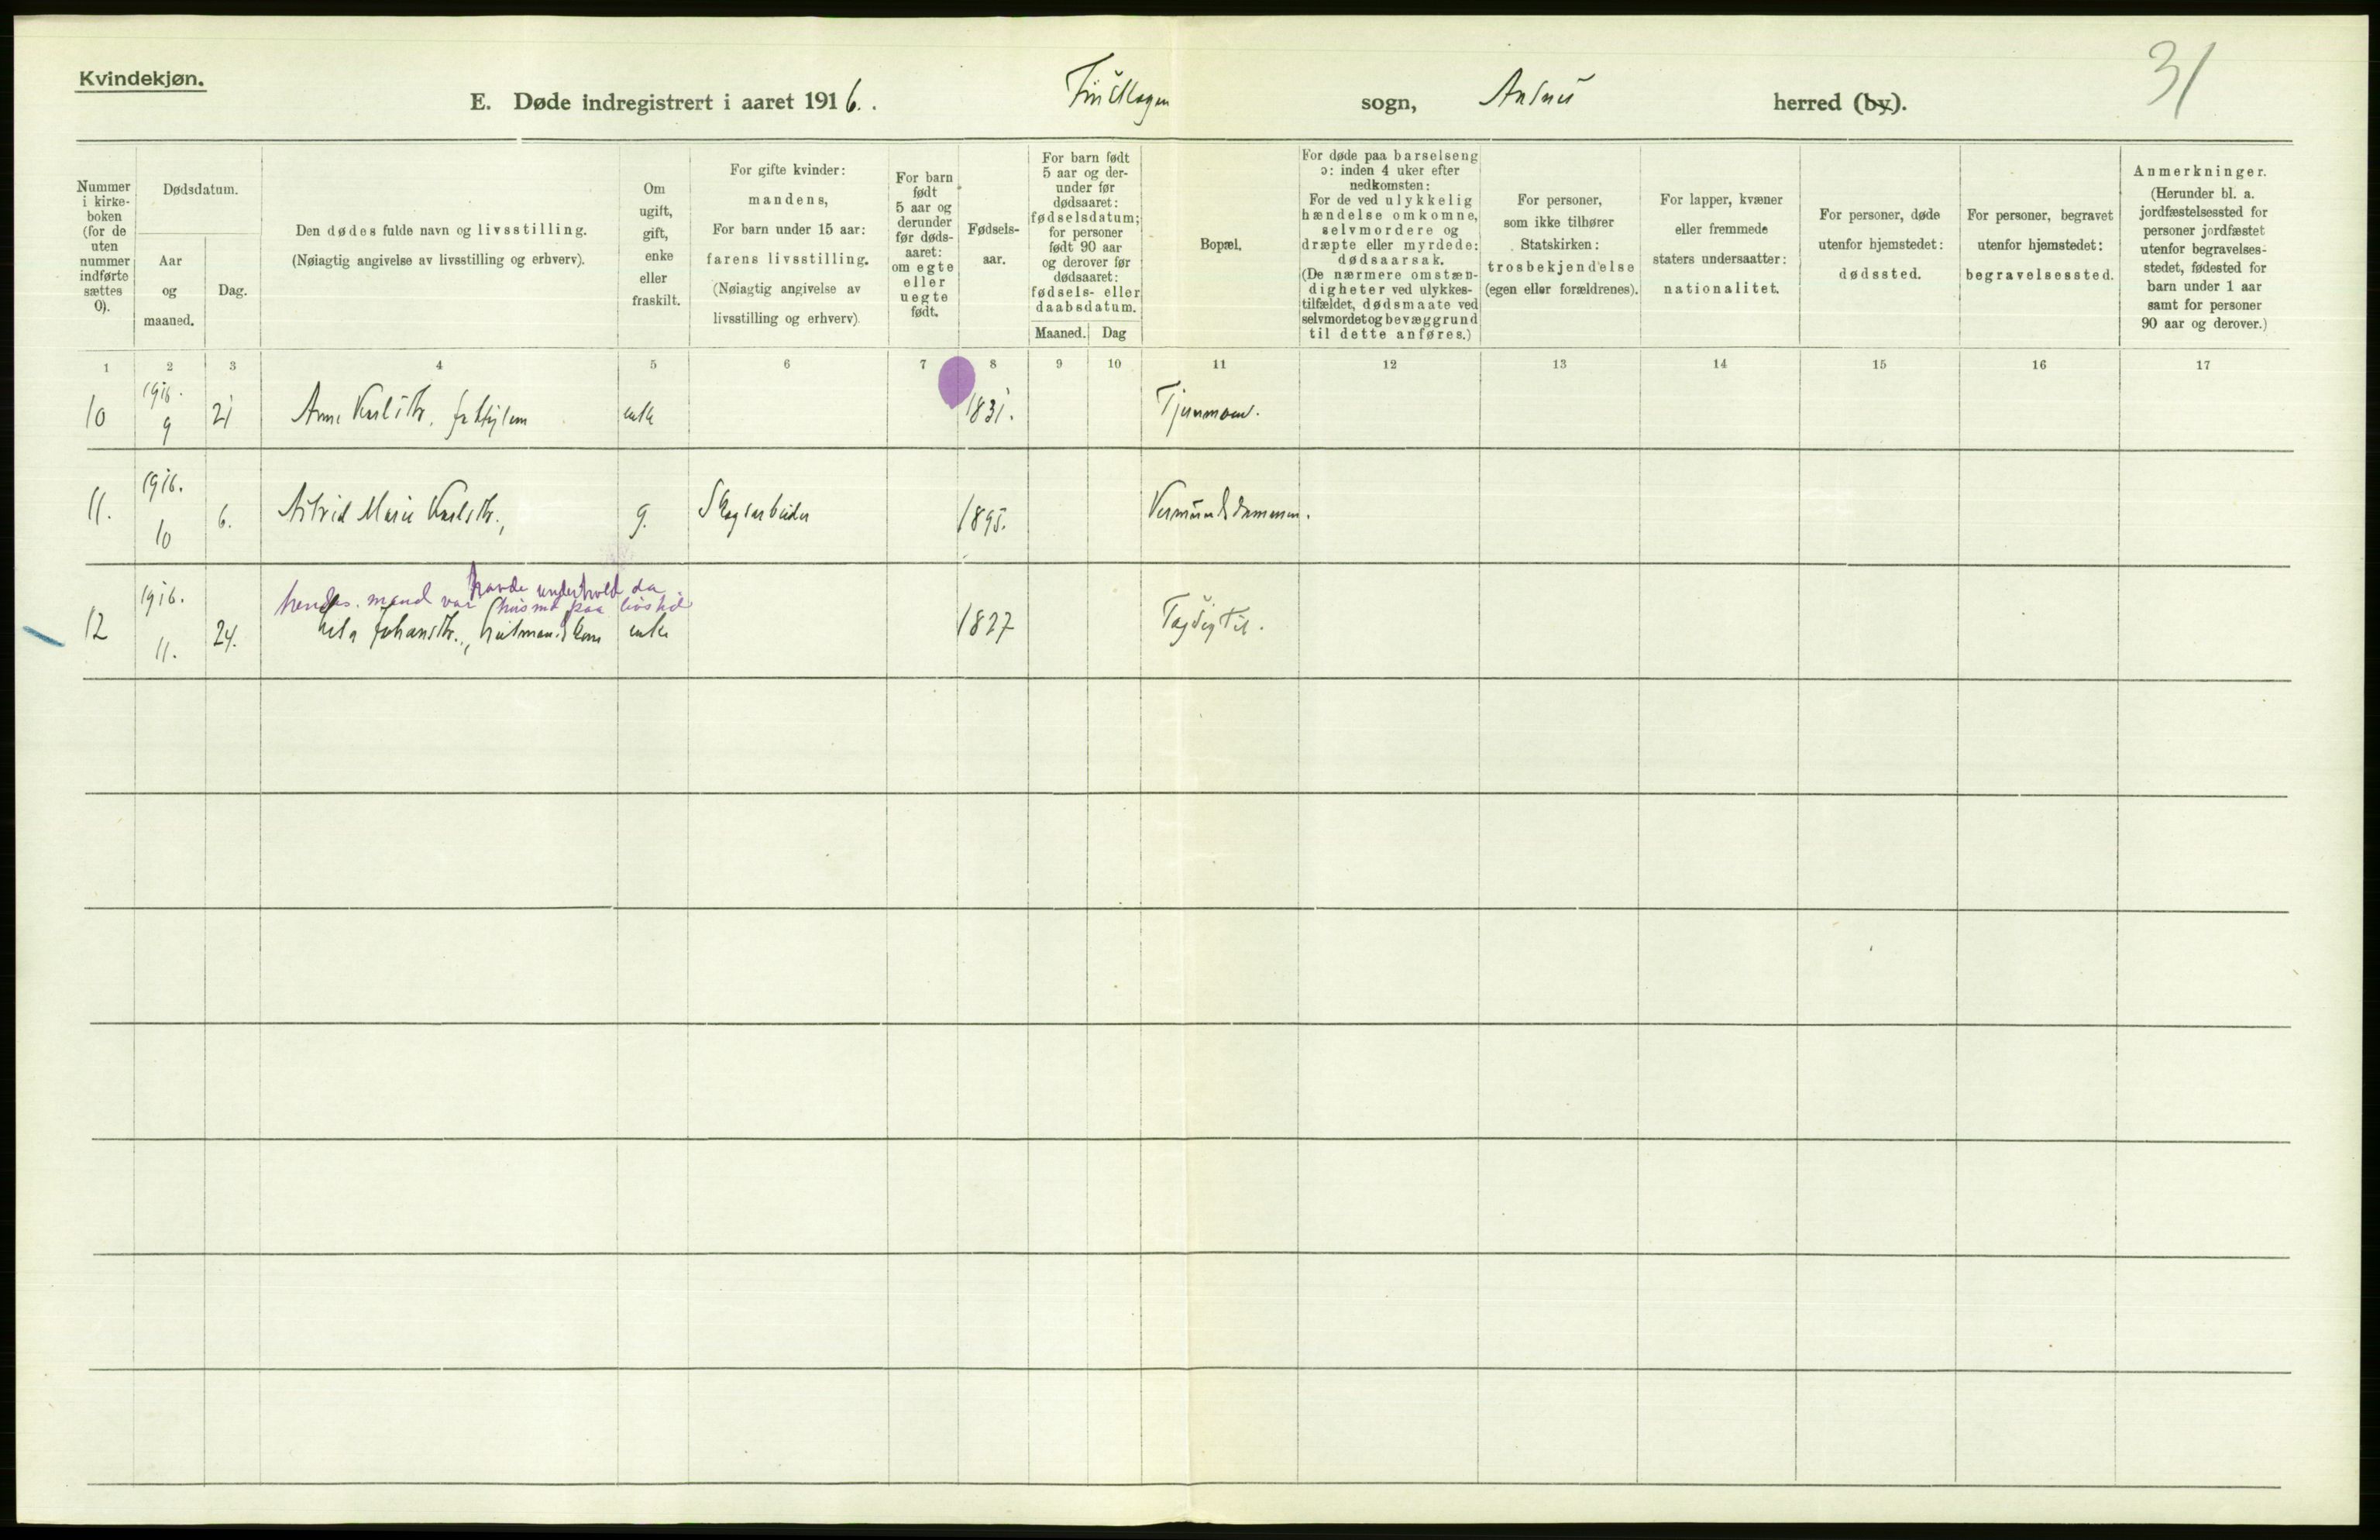 Kvindekjøn.
31
E. Døde indregistrert i aaret 1916. Finskogen sogn, Aasnes herred (by).
Nummer i kirkeboken (for de uten nummer indførte sættes 0).
Dødsdatum.
Aar og maaned.
Dag.
Den dødes fulde navn og livsstilling.
(Nøiagtig angivelse av livsstilling og erhverv).
Om ugift, gift, enke eller fraskilt.
For gifte kvinder: mandens,
For barn under 15 aar: farens livsstilling.
(Nøiagtig angivelse av livsstilling og erhverv).
For barn født 5 aar og derunder før dødsaaret: om egte eller uegte født.
Fødselsaar.
For barn født 5 aar og derunder før dødsaaret: fødselsdatum; for personer født 90 aar og derover før dødsaaret: fødsels- eller daabsdatum.
Maaned.
Dag
Bopæl.
For døde paa barselseng ɔ: inden 4 uker efter nedkomsten:
For de ved ulykkelig hændelse omkomne, selvmordere og dræpte eller myrdede: dødsaarsak.
(De nærmere omstændigheter ved ulykkestilfældet, dødsmaate ved selvmordet og bevæggrund til dette anføres.)
For personer, som ikke tilhører Statskirken: trosbekjendelse (egen eller forældrenes).
For lapper, kvæner eller fremmede staters undersaatter: nationalitet.
For personer, døde utenfor hjemstedet: dødssted.
For personer, begravet utenfor hjemstedet: begravelsessted.
Anmerkninger.
(Herunder bl. a. jordfæstelsessted for personer jordfæstet utenfor begravelsesstedet, fødested for barn under 1 aar samt for personer 90 aar og derover.)
1 2 3 4 5 6 7 8 9 10 11 12 13 14 15 16 17
10 1916. 9 21 Anne Karlsdtr. enke 1831. Tjernmoen.
11. 1916. 10 6. Astrid Marie Karlsdtr., g. Skogsarbeider 1895. Vermundsdammen.
havde underhold da
hendes mand var husmd paa livstid
12 1916. 11. 24. Johansdtr., husmandskone enke 1827